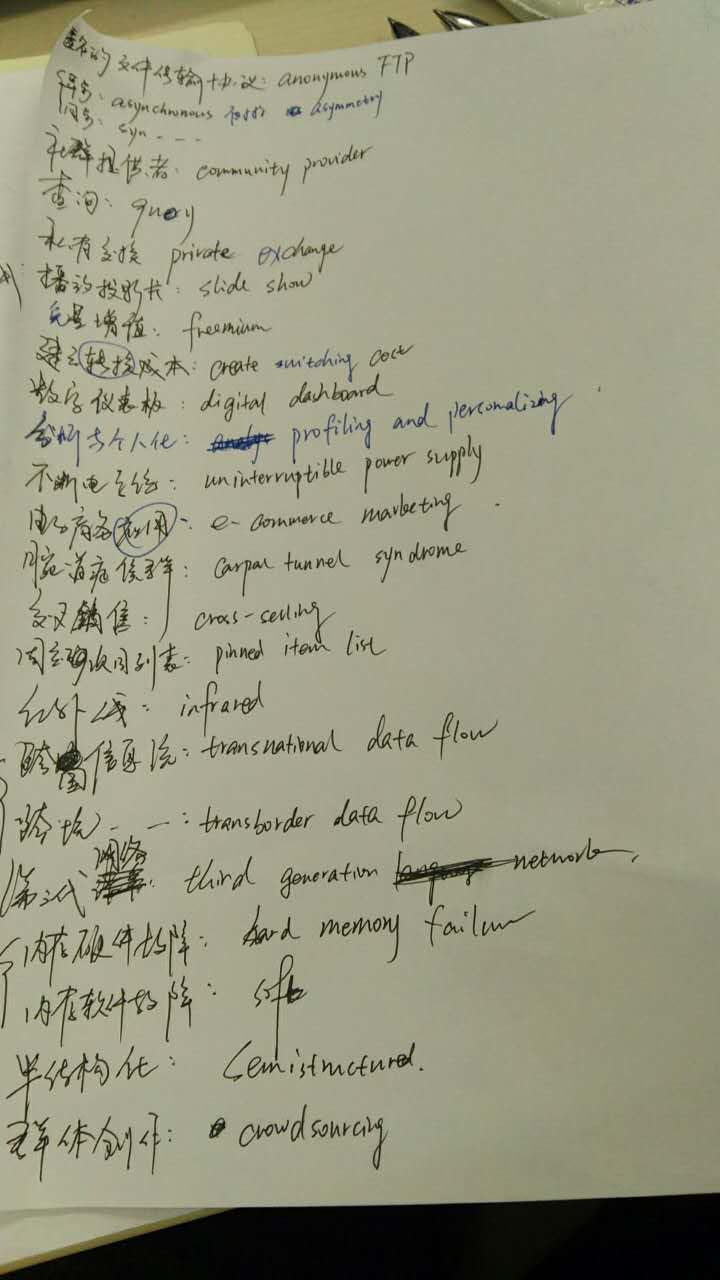 匿名的文件传输协议: anonymous FTP
异步: asynchronous asymmetry
同步: syn - - -
社群提供者: community provider
查询: query
私有交换 private exchange
播放投影片: slide show
免费增值: freemium
建立转换成本: create switching cost
数字仪表板: digital dashboard
分析与个人化: profiling and personalizing
不断电系统: uninterruptible power supply
电子商务应用: e-commerce marketing
腕道症候群: carpal tunnel syndrome
交叉销售: cross-selling
固定项目列表: pinned item list
红外线: infrared
跨国信息流: transnational data flow
跨境 - —: transborder data flow
第三代网络: third generation network
内存硬件故障: hard memory failure
内存软件故障: soft
半结构化: Semistructured.
群体创作: crowdsourcing